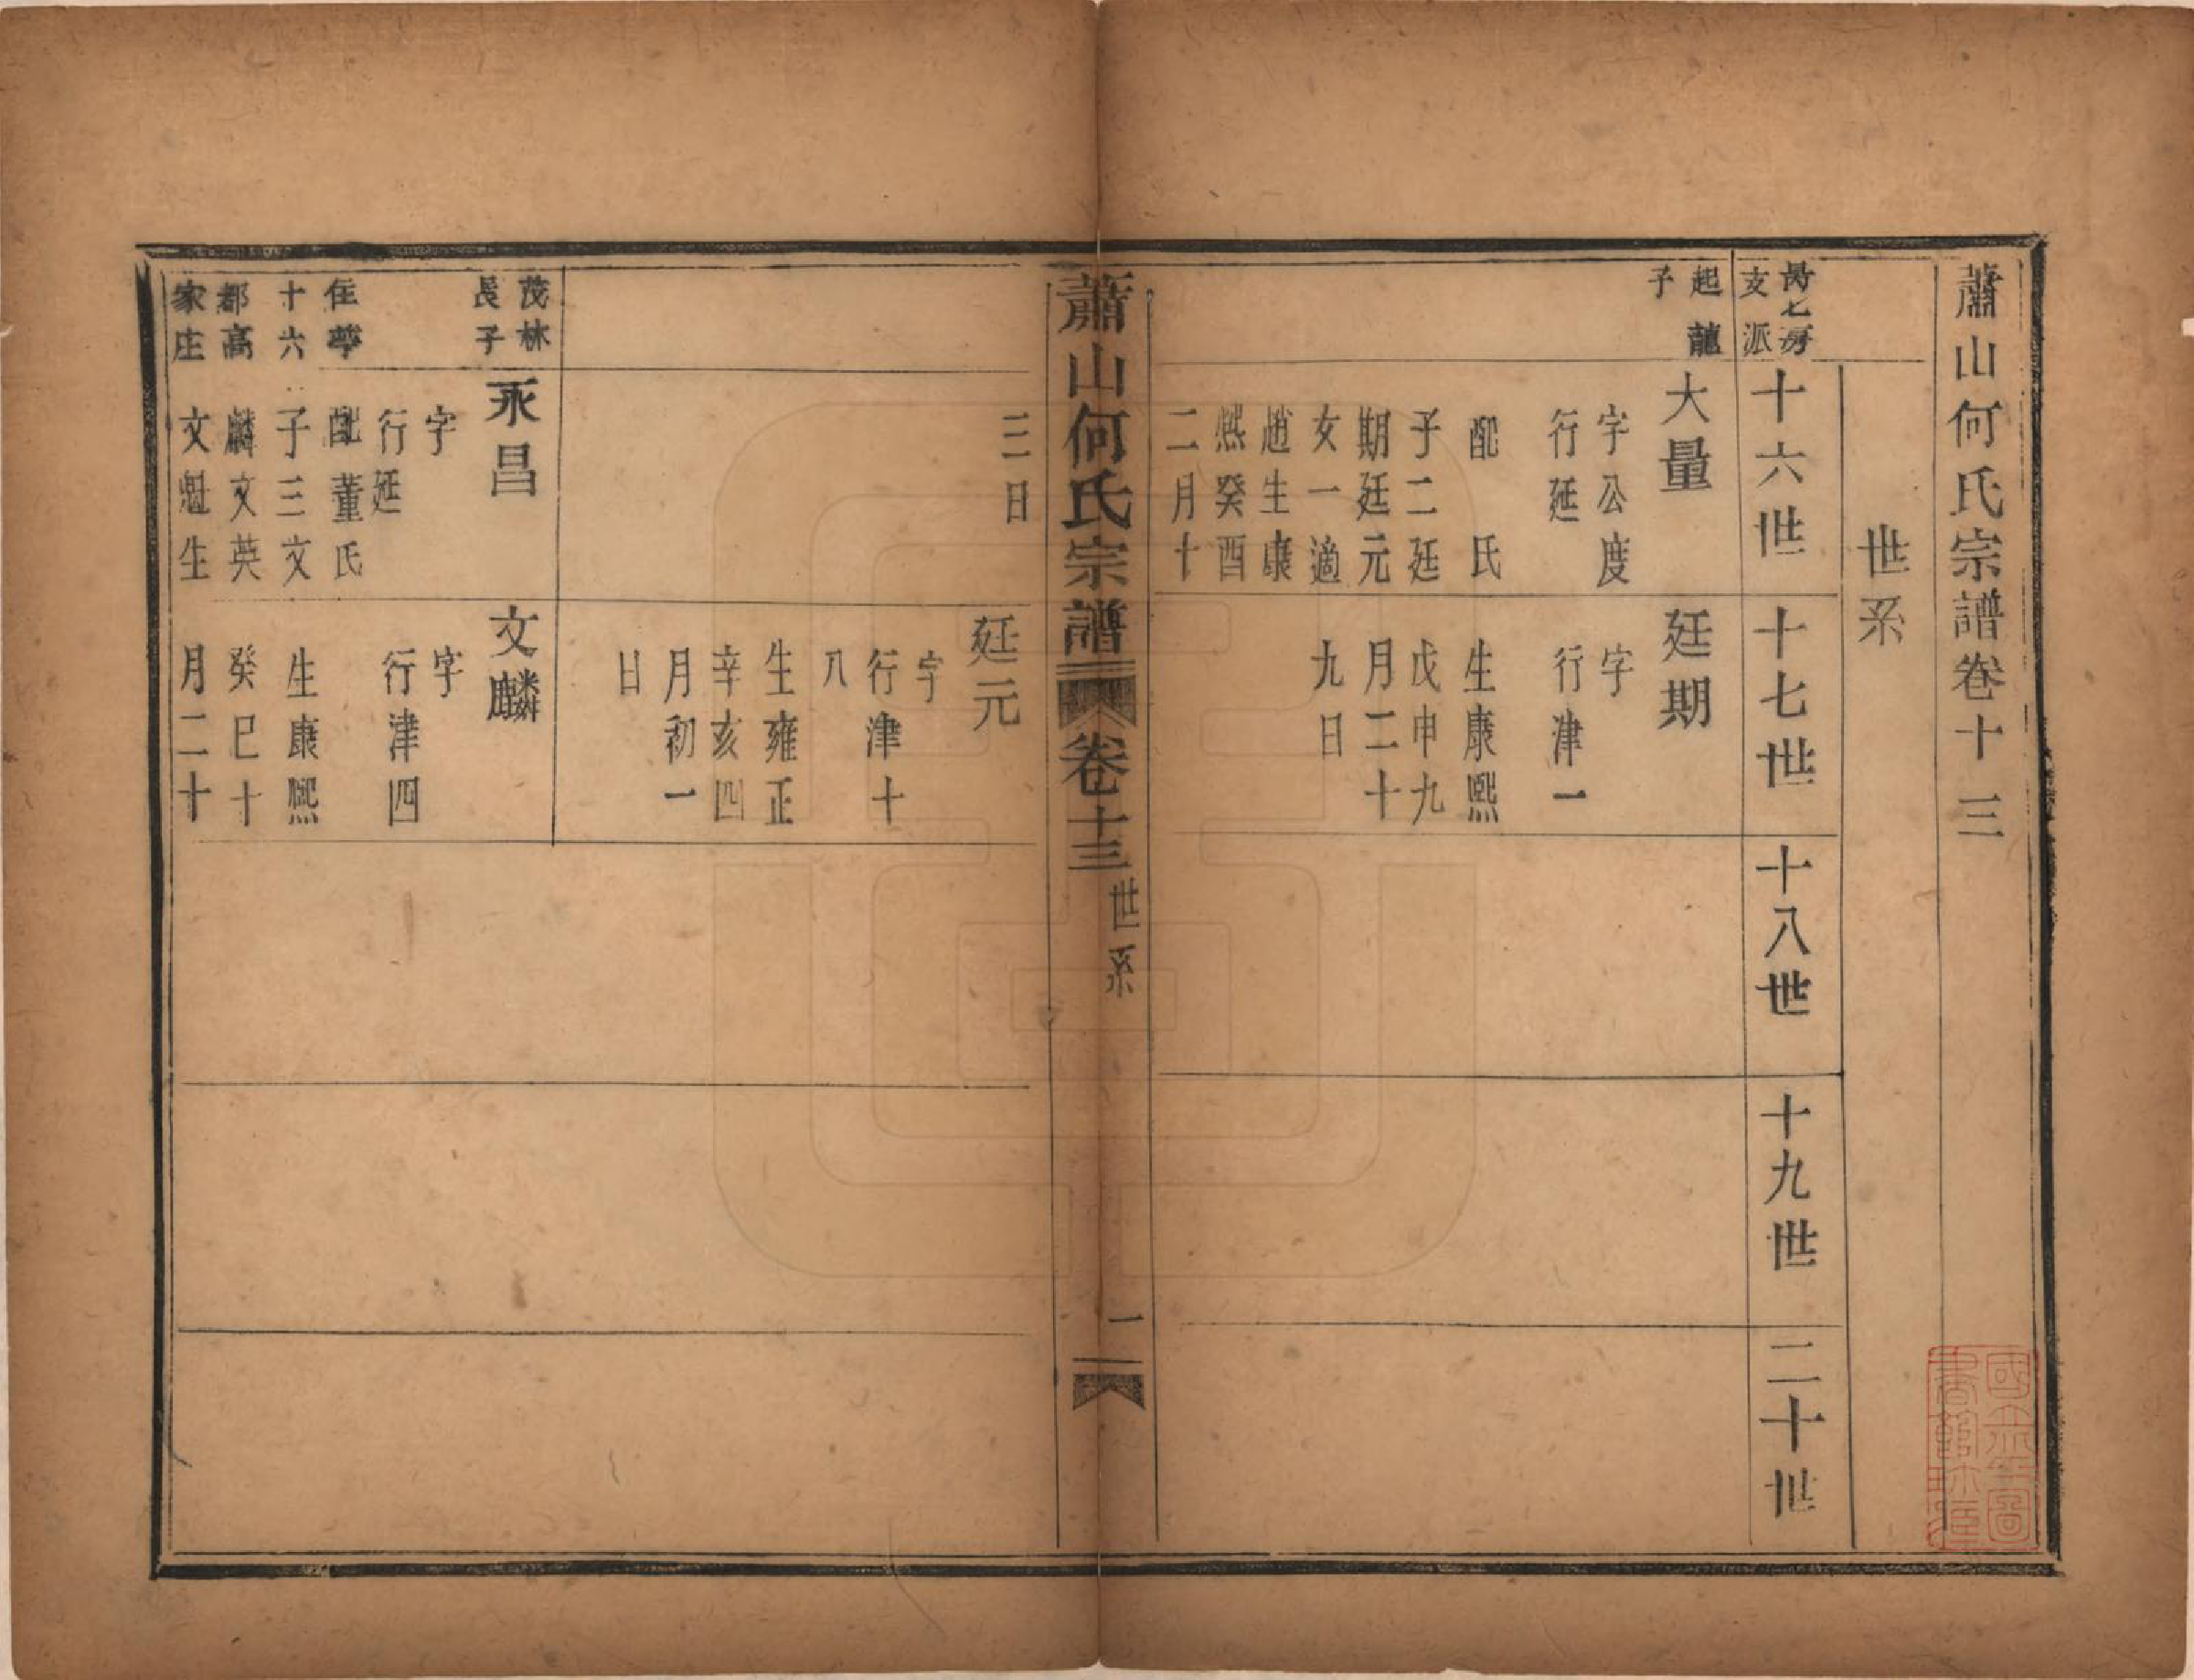 蕭山何氏宗譜卷十三
世系
房
支派
十六世
十七世
十八世
十九世
二十世
起龍
子
大量
字公度
行延
配　氏
子二廷
期廷元
女一適
趙生康
熙癸酉
二月十
廷期
字
行津一
生康熙
戊申九
月二十
九日
蕭山何氏宗譜
卷十三
世系
一
三日
廷元
字
行津十
八
生雍正
辛亥四
月初一
日
茂林
長子
住華
十六
都高
家庄
永昌
字
行延
配董氏
子三文
麟文英
文魁生
文麟
字
行津四
生康熙
癸巳十
月二十
國立北平圖書館珍藏